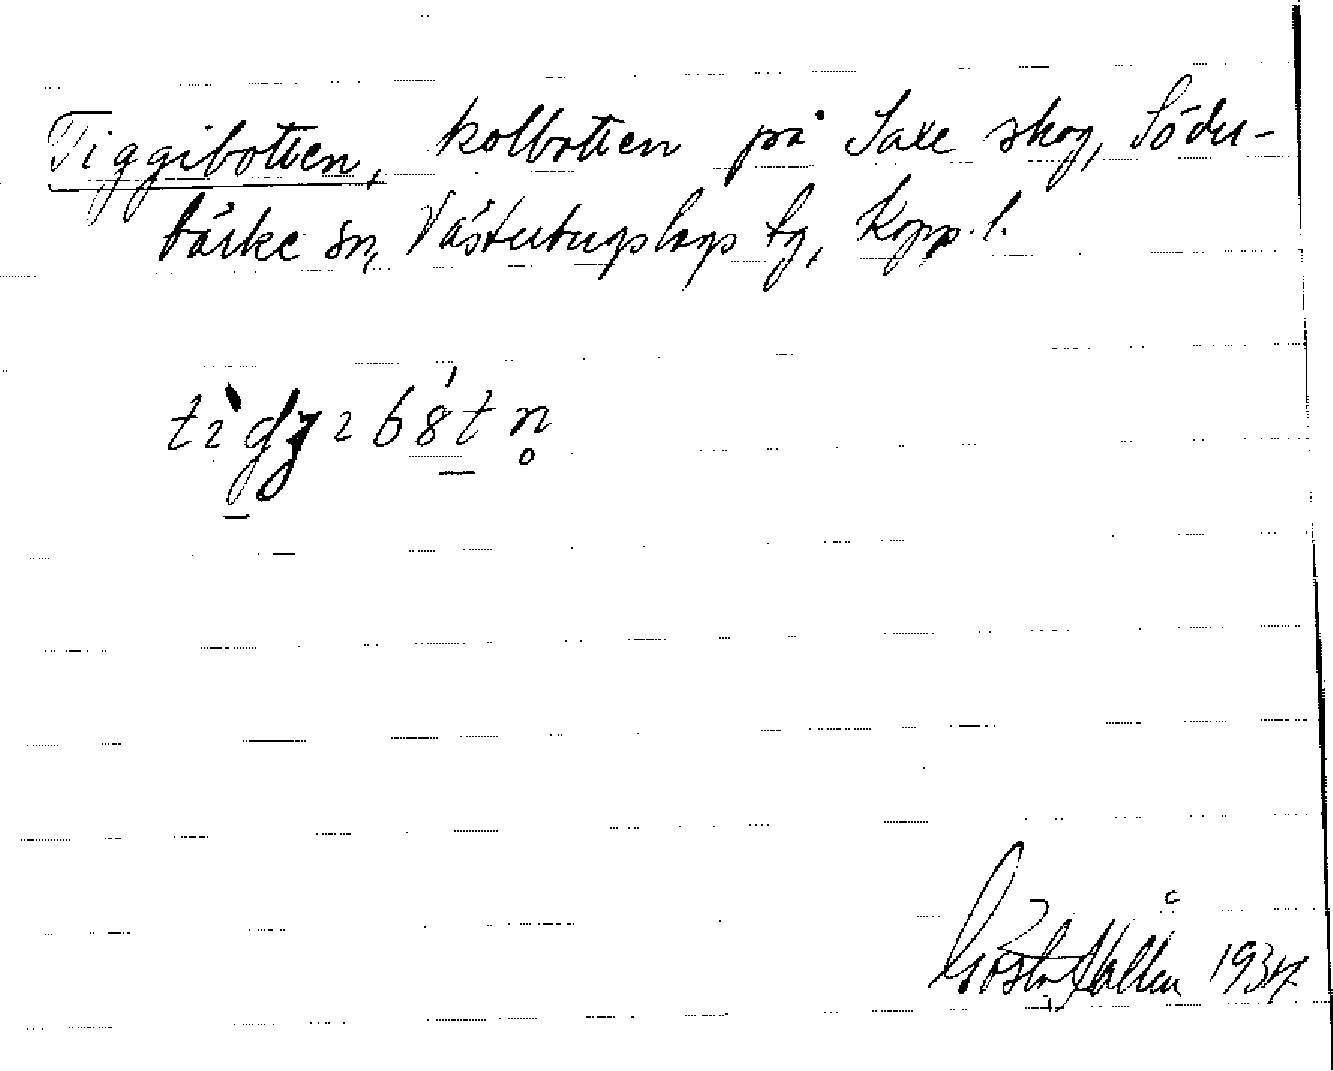 Tiggibotten, kolbotten på Saxe skog, Söder-
bärke sn, Västerbergslags tg, Kopp. l.
Gösta Hallin 1934